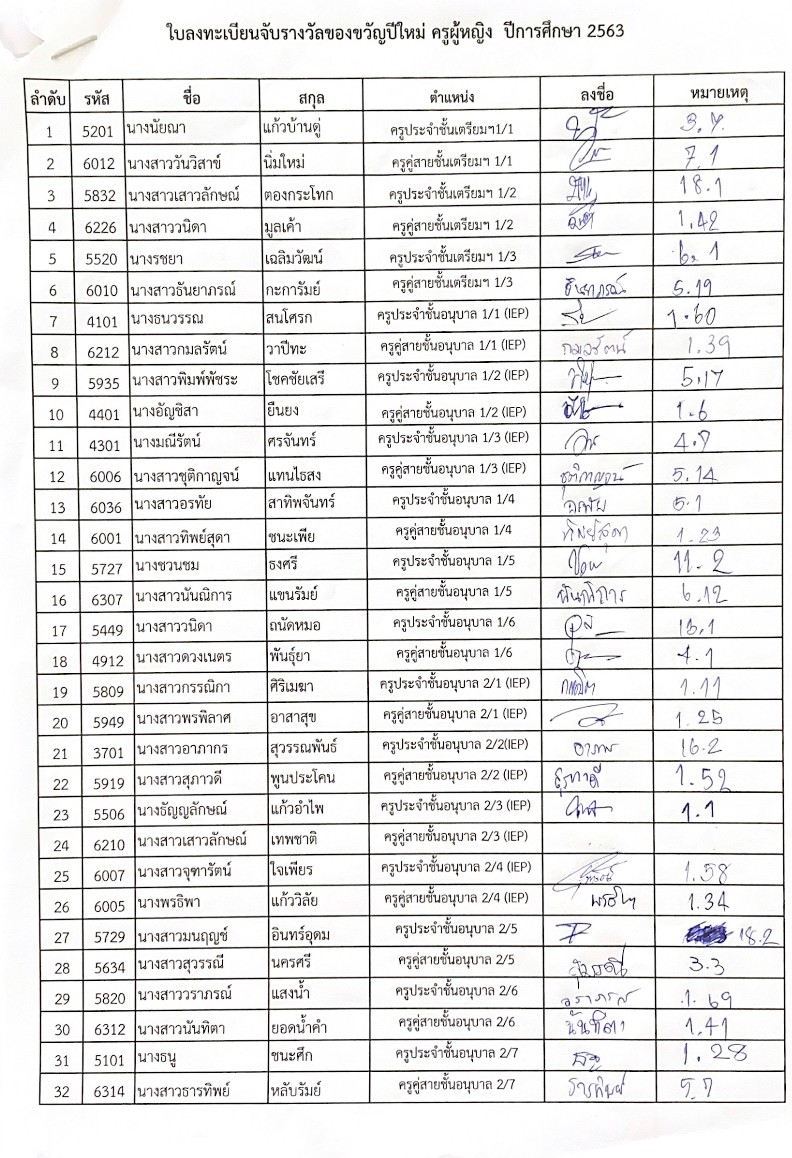 ใบลงทะเบียนจับรางวัลของขวัญปีใหม่ ครูผู้หญิง ปีการศึกษา 2563
ลำดับ รหัส ชื่อ สกุล ตำแหน่ง ลงชื่อ หมายเหตุ
1 5201 นางนัยณา แก้วบ้านดู่ ครูประจำชั้นเตรียมฯ1/1
2 6012 นางสาววันวิสาข์ นิ่มใหม่ ครูคู่สายชั้นเตรียมฯ 1/1 7.1
3 5832 นางสาวเสาวลักษณ์ ตองกระโทก ครูประจำชั้นเตรียมฯ 1/2 18.1
4 6226 นางสาววนิดา มูลเค้า ครูคู่สายชั้นเตรียมฯ 1/2 1.42
5 5520 นางรชยา เฉลิมวัฒน์ ครูประจำชั้นเตรียมฯ 1/3 6.1
6 6010 นางสาวธันยาภรณ์ กะการัมย์ ครูคู่สายชั้นเตรียมฯ 1/3 ธันยาภรณ์ 5.19
7 4101 นางธนวรรณ สนโศรก ครูประจำชั้นอนุบาล 1/1 (IEP) 1.60
8 6212 นางสาวกมลรัตน์ วาปีทะ ครูคู่สายชั้นอนุบาล 1/1 (IEP) กมลรัตน์ 1.39
9 5935 นางสาวพิมพ์พัชระ โชคชัยเสรี ครูประจำชั้นอนุบาล 1/2 (IEP) 5.17
10 4401 นางอัญชิสา ยืนยง ครูคู่สายชั้นอนุบาล 1/2 (IEP) 1.6
11 4301 นางมณีรัตน์ ศรจันทร์ ครูประจำชั้นอนุบาล 1/3 (IEP)
12 6006 นางสาวชุติกาญจน์ แทนไธสง ครูคู่สายชั้นอนุบาล 1/3 (IEP) ชุติกาญจน์ 5.14
13 6036 นางสาวอรทัย สาทิพจันทร์ ครูประจำชั้นอนุบาล 1/4 อรทัย 5.1
14 6001 นางสาวทิพย์สุดา ชนะเพีย ครูคู่สายชั้นอนุบาล 1/4 ทิพย์สุดา 1.23
15 5727 นางชวนชม ธงศรี ครูประจำชั้นอนุบาล 1/5 11.2
16 6307 นางสาวนันณิการ แขนรัมย์ ครูคู่สายชั้นอนุบาล 1/5 นันณิการ 6.12
17 5449 นางสาววนิดา ถนัดหมอ ครูประจำชั้นอนุบาล 1/6
18 4912 นางสาวดวงเนตร พันธุ์ยา ครูคู่สายชั้นอนุบาล 1/6 4.1
19 5809 นางสาวกรรณิกา ศิริเมฆา ครูประจำชั้นอนุบาล 2/1 (IEP) 1.11
20 5949 นางสาวพรพิลาศ อาสาสุข ครูคู่สายชั้นอนุบาล 2/1 (IEP) 1.25
21 3701 นางสาวอาภากร สุวรรณพันธ์ ครูประจำชั้นอนุบาล 2/2(IEP) 16.2
22 5919 นางสาวสุภาวดี พูนประโคน ครูคู่สายชั้นอนุบาล 2/2 (IEP) 1.52
23 5506 นางธัญญลักษณ์ แก้วอำไพ ครูประจำชั้นอนุบาล 2/3 (IEP) 1.1
24 6210 นางสาวเสาวลักษณ์ เทพชาติ ครูคู่สายชั้นอนุบาล 2/3 (IEP)
25 6007 นางสาวจุฑารัตน์ ใจเพียร ครูประจำชั้นอนุบาล 2/4 (IEP) 1.58
26 6005 นางพรธิพา แก้ววิลัย ครูคู่สายชั้นอนุบาล 2/4 (IEP) 1.34
27 5729 นางสาวมนฤญช์ อินทร์อุดม ครูประจำชั้นอนุบาล 2/5 18.2
28 5634 นางสาวสุวรรณี นครศรี ครูคู่สายชั้นอนุบาล 2/5 สุวรรณี 3.3
29 5820 นางสาววราภรณ์ แสงน้ำ ครูประจำชั้นอนุบาล 2/6 วราภรณ์ 1.69
30 6312 นางสาวนันทิตา ยอดน้ำคำ ครูคู่สายชั้นอนุบาล 2/6 นันทิตา 1.41
31 5101 นางธนู ชนะศึก ครูประจำชั้นอนุบาล 2/7 ธนู 1.28
32 6314 นางสาวธารทิพย์ หลับรัมย์ ครูคู่สายชั้นอนุบาล 2/7 ธารทิพย์